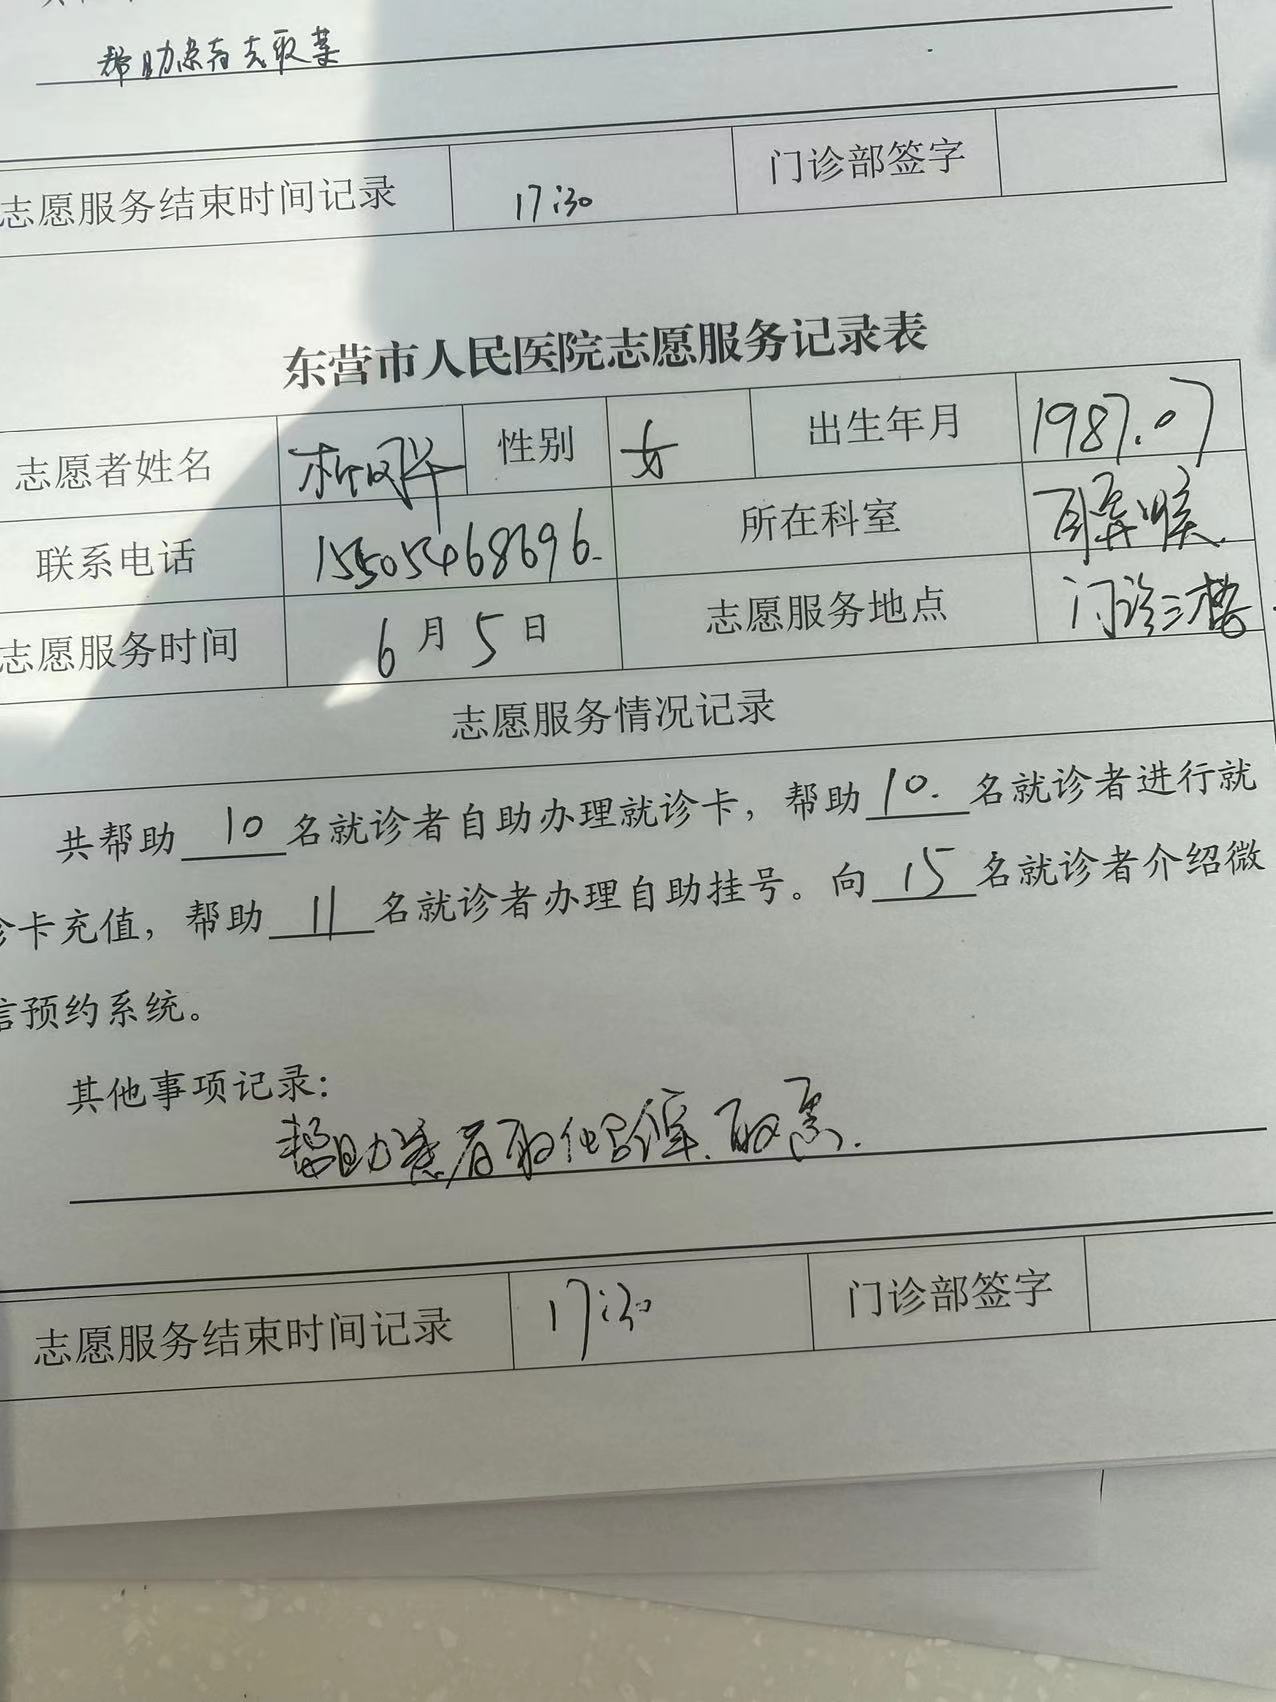 帮助患者去取药
志愿服务结束时间记录 17:30 门诊部签字
东营市人民医院志愿服务记录表
志愿者姓名 性别 女 出生年月 1987.07
联系电话 15505468696. 所在科室 耳鼻喉
志愿服务时间 6月5日 志愿服务地点 门诊三楼
志愿服务情况记录
共帮助 10 名就诊者自助办理就诊卡，帮助 10. 名就诊者进行就
诊卡充值，帮助 11 名就诊者办理自助挂号。向 15 名就诊者介绍微
信预约系统。
其他事项记录：
帮助患者取化验单.取药.
志愿服务结束时间记录 17:30 门诊部签字